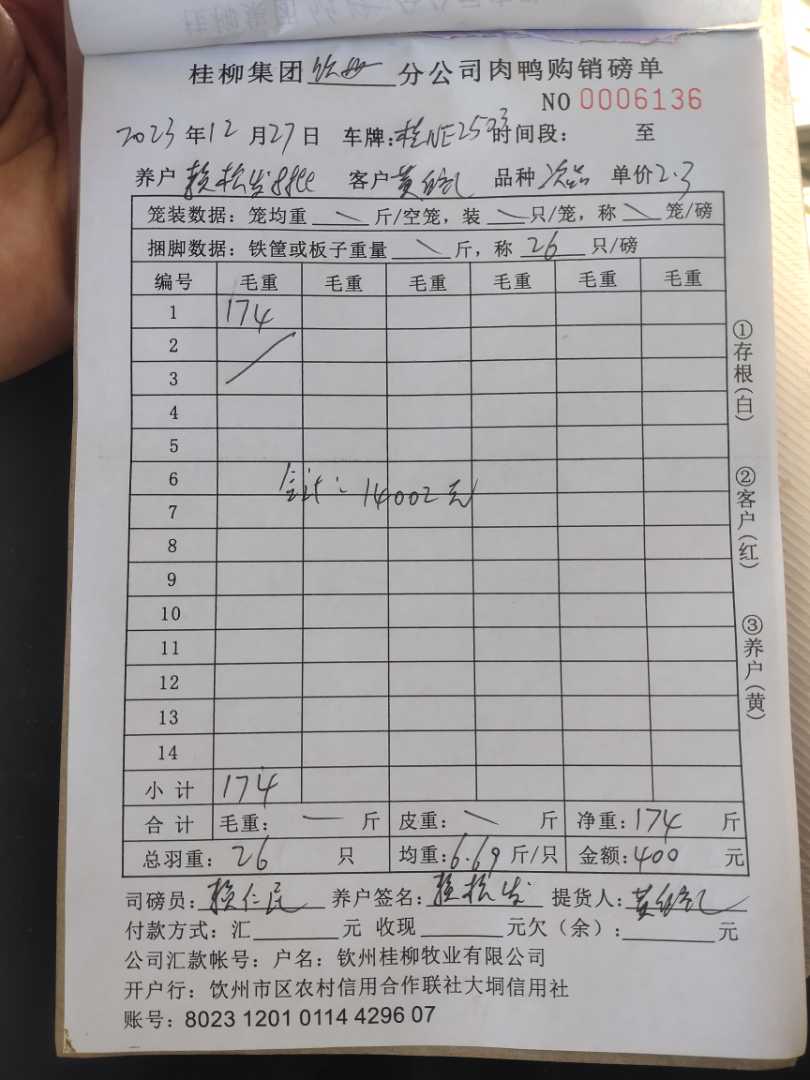 桂柳集团钦州分公司肉鸭购销磅单
NO 0006136
2023年12月27日 车牌:桂NE2533时间段: 至
养户 赖松发 客户 黄 品种 次品 单价2.3
笼装数据: 笼均重 \ 斤/空笼, 装 \ 只/笼, 称 \ 笼/磅
捆脚数据: 铁筐或板子重量 \ 斤, 称 26 只/磅
编号 毛重 毛重 毛重 毛重 毛重 毛重
1 174
2
3
4
5
6
合计: 14002元
7
8
9
10
11
12
13
14
小计 174
合计 毛重: — 斤 皮重: \ 斤 净重: 174 斤
总羽重: 26 只 均重: 6.69 斤/只 金额: 400 元
司磅员: 赖仁民 养户签名: 赖松发 提货人: 黄
付款方式: 汇 元 收现 元欠(余): 元
公司汇款帐号: 户名: 钦州桂柳牧业有限公司
开户行: 饮州市区农村信用合作联社大垌信用社
账号: 8023 1201 0114 4296 07
①存根(白)
②客户(红)
③养户(黄)